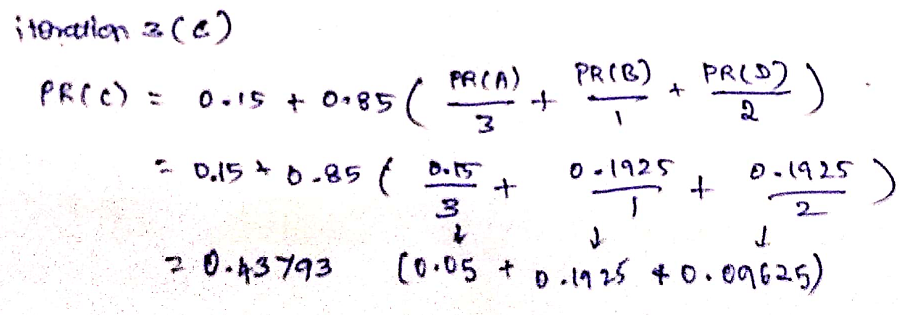 iteration 3 (C)
PR(C) = 0.15 + 0.85 ( PR(A)/3 + PR(B)/1 + PR(D)/2 )
= 0.15 + 0.85 ( 0.15/3 + 0.1925/1 + 0.1925/2 )
↓ ↓ ↓
= 0.43793 (0.05 + 0.1925 + 0.09625)